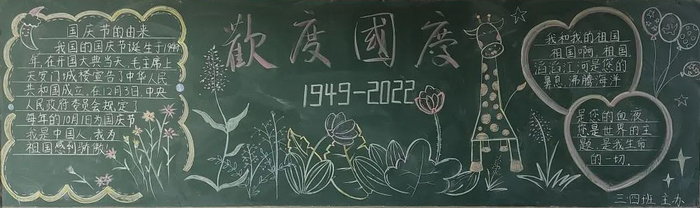 国庆节的由来
我国的国庆节诞生于1949
年,在开国大典当天,毛主席上
天安门城楼宣告了中华人民
共和国成立,在12月3日,中央
人民政府委员会规定了
每年的10月1日为国庆节
我是中国人,我为
祖国感到骄傲!
歡度國慶
1949-2022
我和我的祖国
祖国啊,祖国
滔滔江河是您的
沸腾海洋
是您的血液,
您是世界的主
题,是我生命
的一切.
三.四班 主办